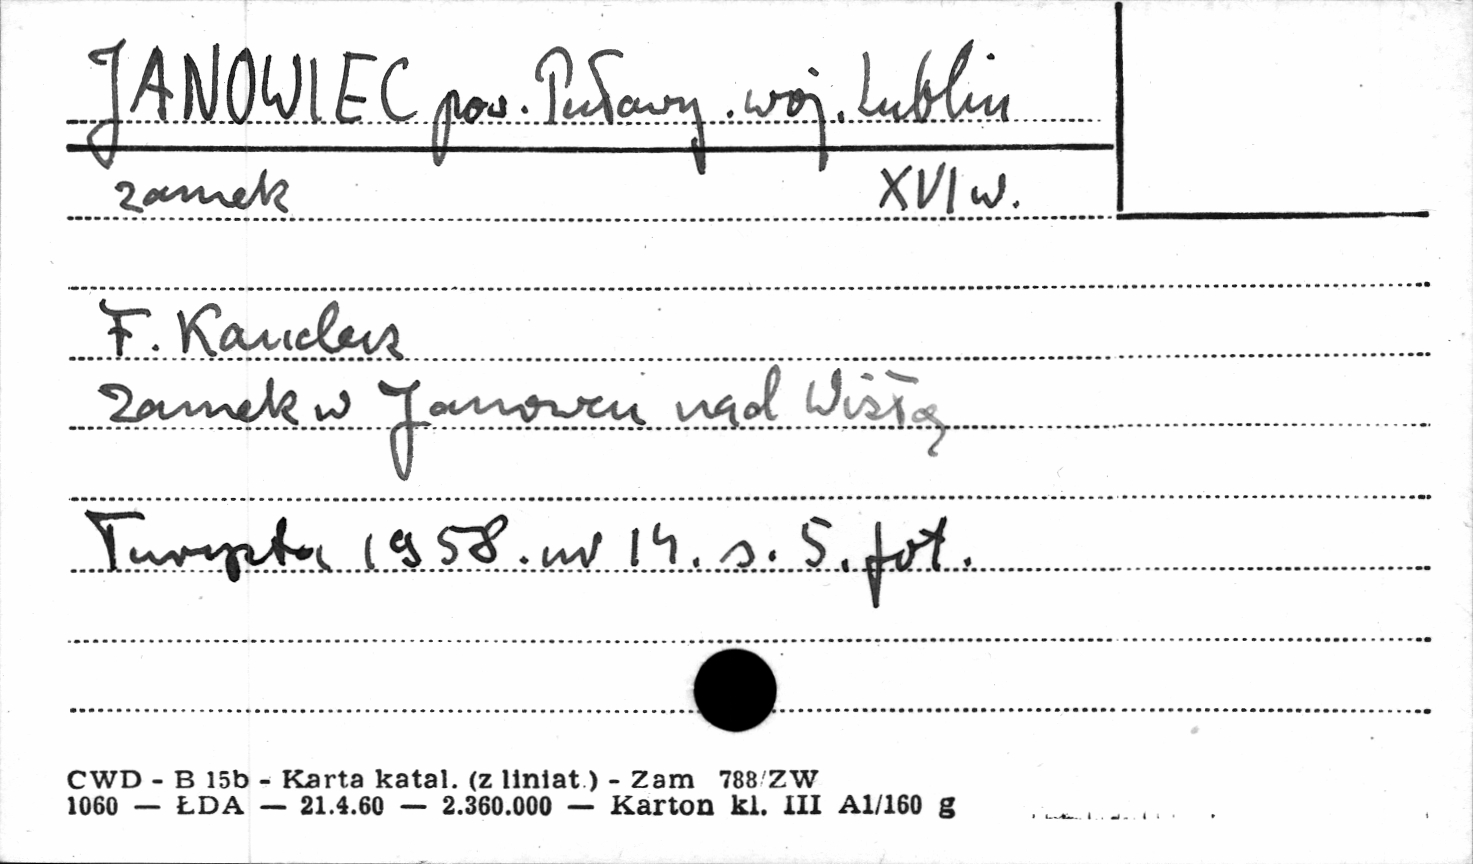 JANOWIEC pow. Puławy. woj. Lublin
zamek XVI w.
F. Kanclerz
Zamek w Janowcu nad Wisłą
Turysta 1958. nr 14. s. 5. fot.
CWD - B 15b - Karta katal. (z liniat.) - Zam 788/ZW
1060 — ŁDA — 21.4.60 — 2.360.000 — Karton kl. III A1/160 g